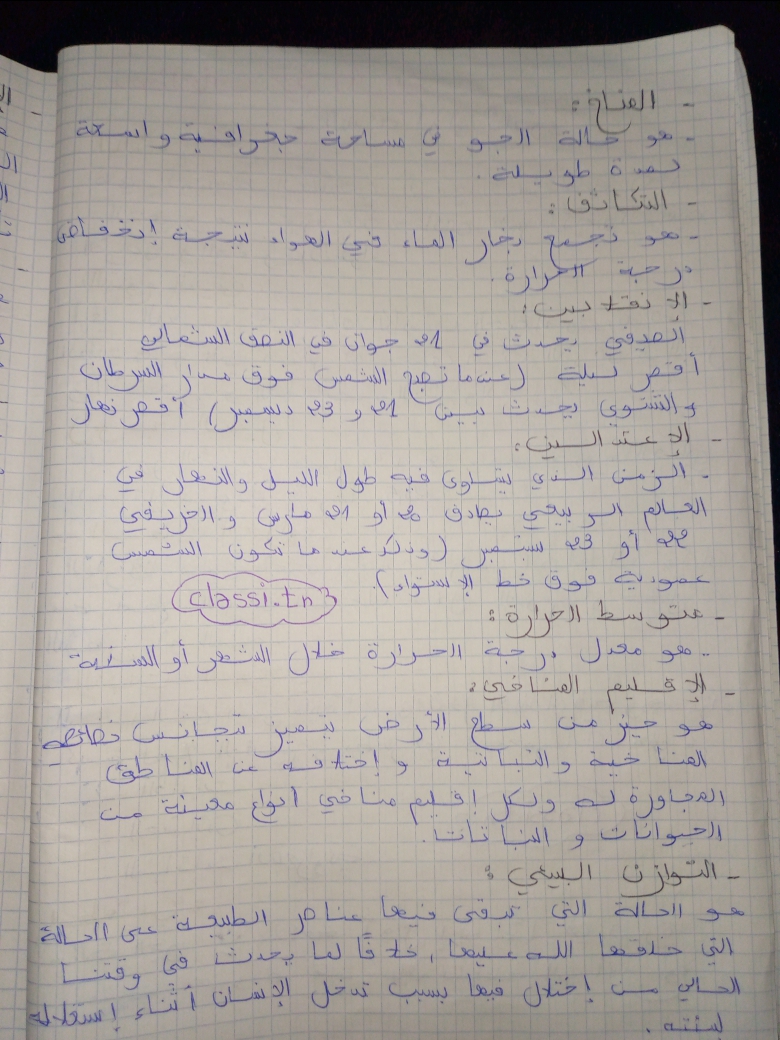 - المناخ:
- هو حالة الجو في مساحة جغرافية واسعة
لمدة طويلة.
- التكاثف:
- هو تجمع بخار الماء في الهواء نتيجة إنخفاض
درجة الحرارة.
- الإنقلابين:
الصيفي يحدث في 21 جوان في النصف الشمالي
أقصر ليلة (عندما تصبح الشمس فوق مدار السرطان
والشتوي يحدث بين 21 و 23 ديسمبر) أقصر نهار
- الإعتدالين:
- الزمن الذي يتساوى فيه طول الليل والنهار في
العالم الربيعي يصادف 20 أو 21 مارس والخريفي
22 أو 23 سبتمبر (وذلك عند ما تكون الشمس
عمودية فوق خط الإستواء).
classi.tn
- متوسط الحرارة:
- هو معدل درجة الحرارة خلال الشهر أو السنة
- الإقليم المناخي:
هو حيز من سطح الأرض يتميز بتجانس خصائصه
المناخية والنباتية و إختلافه عن المناطق
المجاورة له ولكل إقليم مناخي أنواع معينة من
الحيوانات و النباتات.
- التوازن البيئي:
هو الحالة التي تبقى فيها عناصر الطبيعة على الحالة
التي خلقها الله عليها, خلافًا لما يحدث في وقتنا
الحالي من إختلال فيها بسبب تدخل الإنسان أثناء إستغلاله
لبيئته.